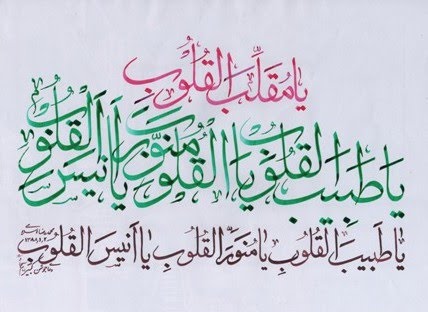 يَا مُقَلِّبَ القُلُوبِ
يَا طَبِيبَ القُلُوبِ يَا مُنَوِّرَ القُلُوبِ يَا أَنِيسَ القُلُوبِ
يَا طَبِيبَ القُلُوبِ يَا مُنَوِّرَ القُلُوبِ يَا أَنِيسَ القُلُوبِ